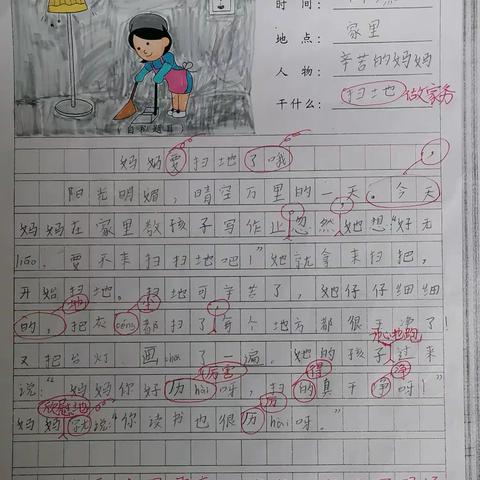 时间：
地点：家里
人物：辛苦的妈妈
干什么：扫地 做家务
（自拟题目）
妈妈要扫地了哦
阳光明媚，晴空万里的一天。今天
妈妈在家里教孩子写作业忽然她想“好无
liáo，要不来扫扫地吧！”她就拿来扫把，
开始扫地。扫地可辛苦了，她仔仔细细
地 尘
的，把灰cén都扫了，每个地方都很干净了！
开心地跑
又把台灯画 了一遍。她的孩子过来
厉害 得 净
说：“妈妈你好历hài呀，扫的真干净呀！”
欣慰地 厉
妈妈就说：“你读书也很历hài呀。”